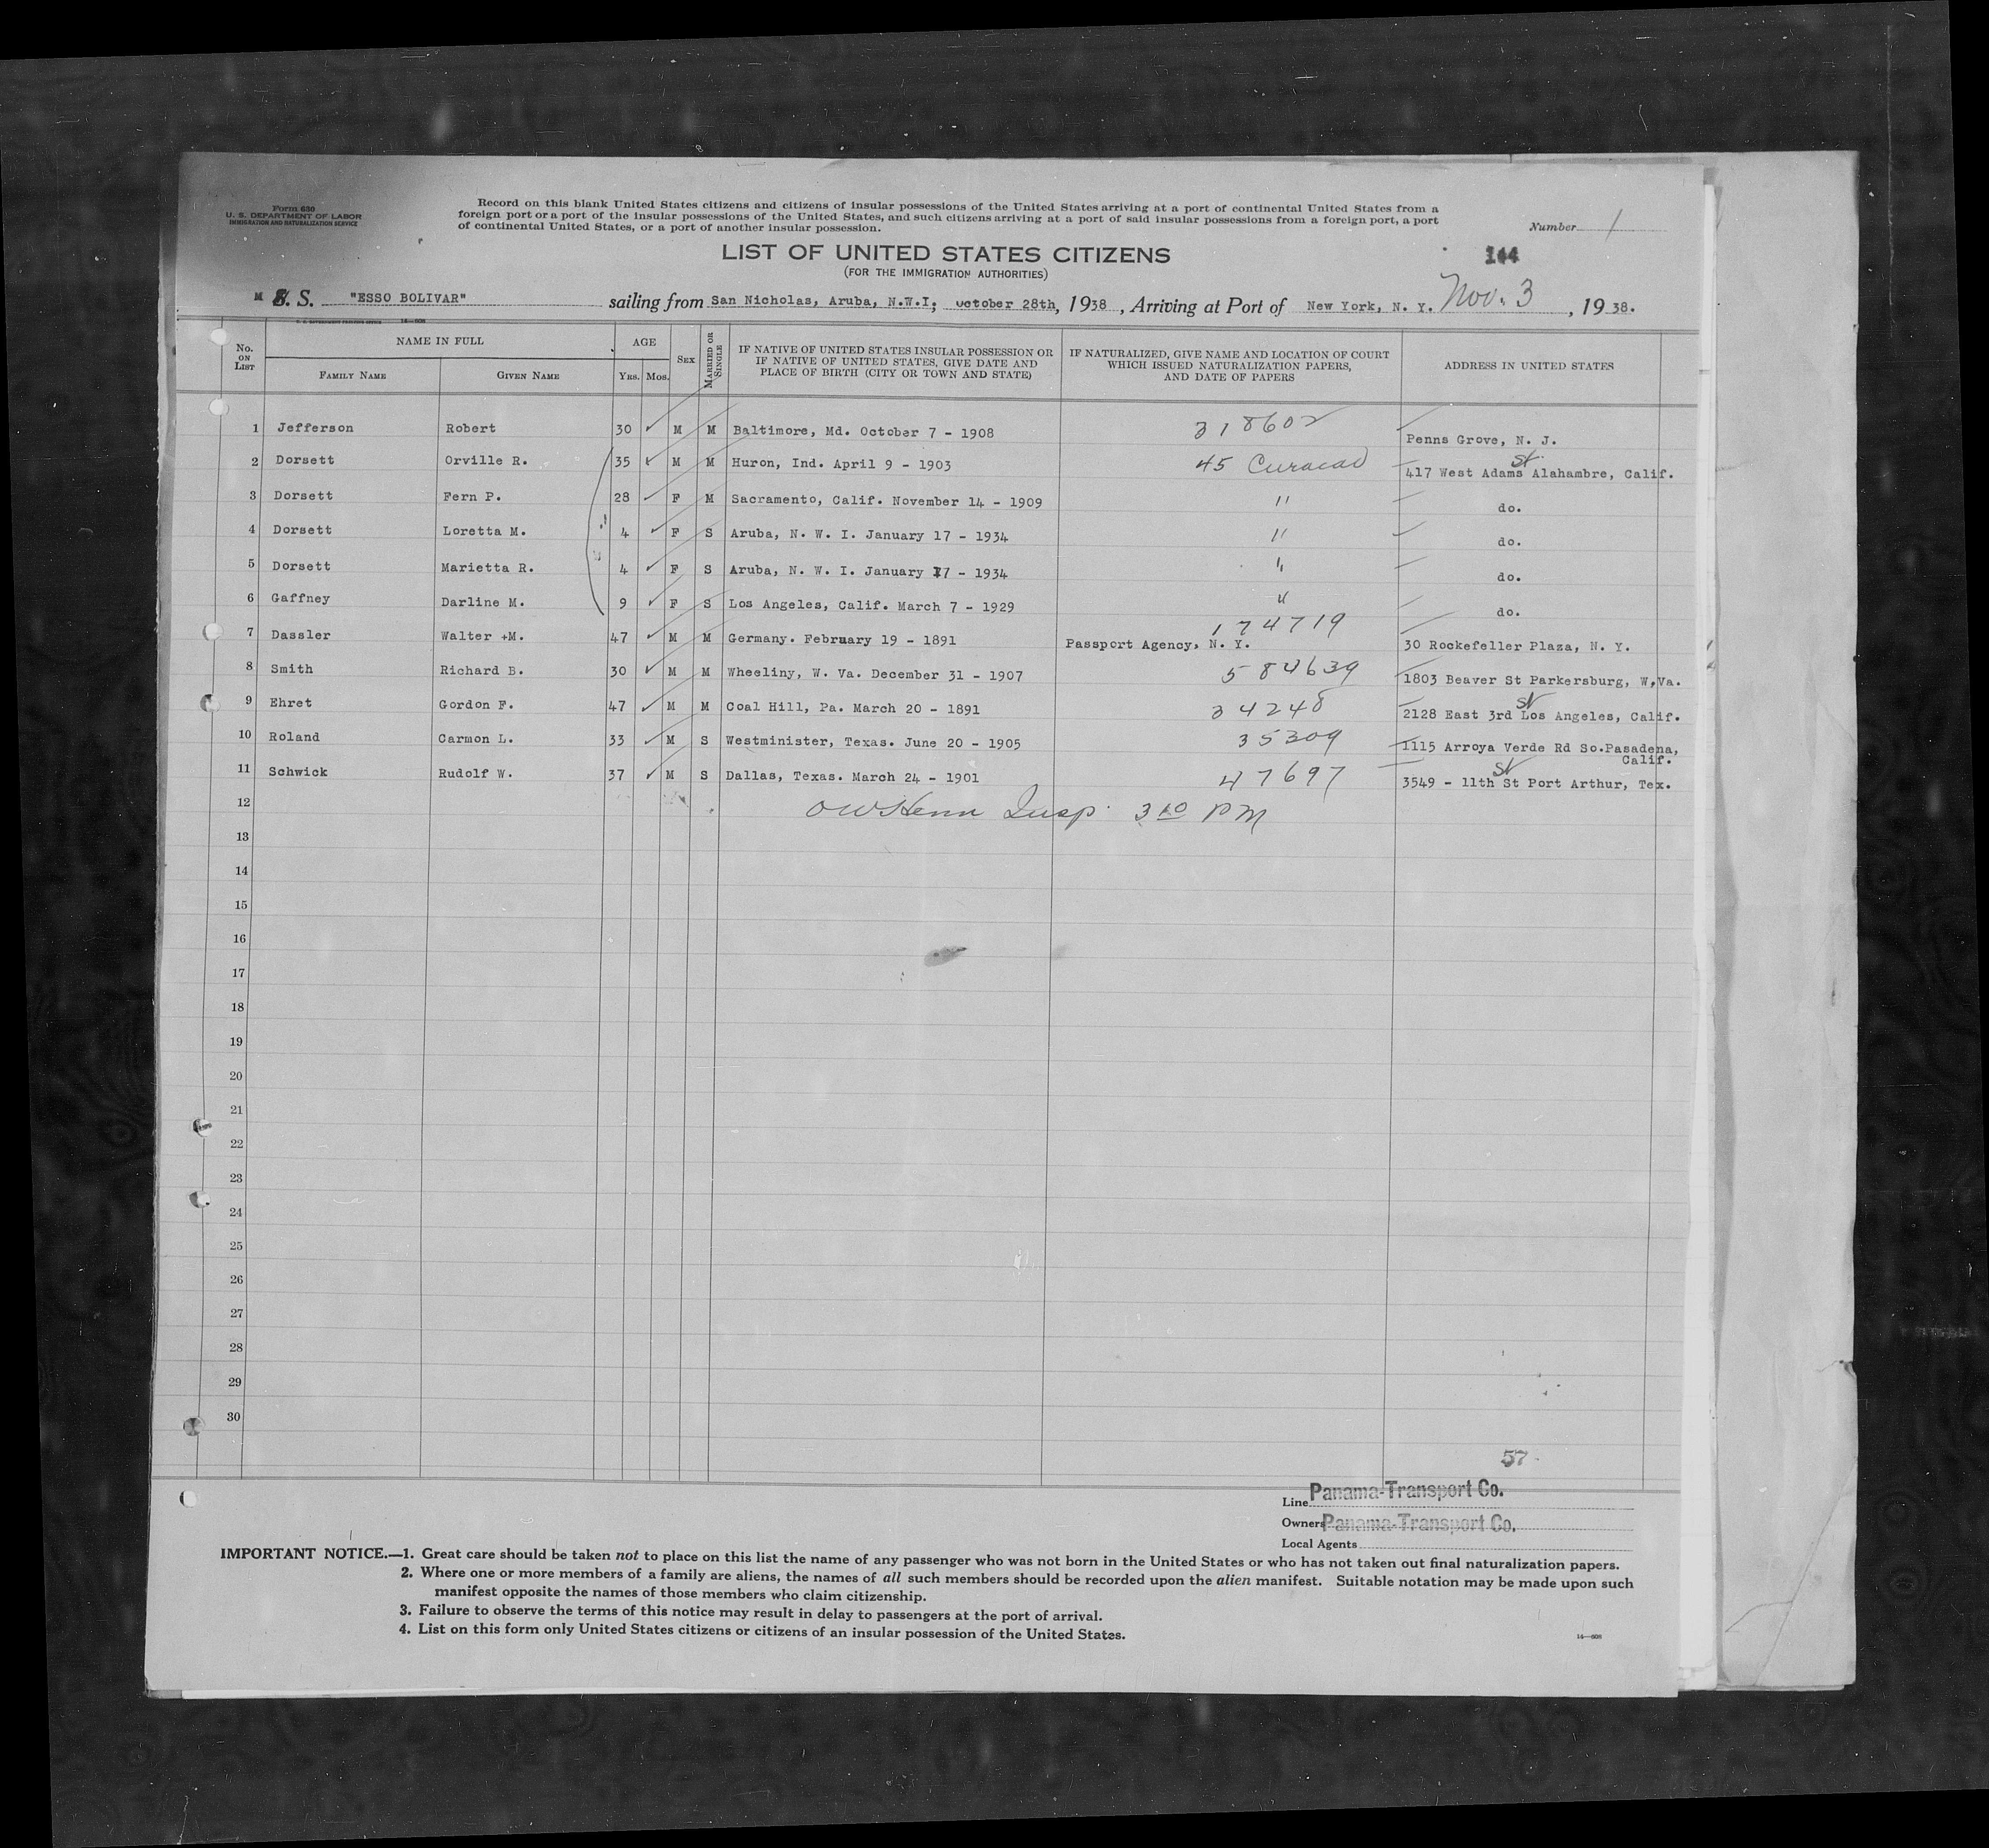 Form 630
U. S. DEPARTMENT OF LABOR
IMMIGRATION AND NATURALIZATION SERVICE
Record on this blank United States citizens and citizens of insular possessions of the United States arriving at a port of continental United States from a
foreign port or a port of the insular possessions of the United States, and such citizens arriving at a port of said insular possessions from a foreign port, a port
of continental United States, or a port of another insular possession.
Number 1
LIST OF UNITED STATES CITIZENS
144
(FOR THE IMMIGRATION AUTHORITIES)
M S. S. "ESSO BOLIVAR" sailing from San Nicholas, Aruba, N.W.I; October 28th, 1938, Arriving at Port of New York, N. Y. Nov. 3, 1938.
No. ON LIST
NAME IN FULL
FAMILY NAME GIVEN NAME
AGE
YRS. MOS.
SEX
MARRIED OR SINGLE
IF NATIVE OF UNITED STATES INSULAR POSSESSION OR
IF NATIVE OF UNITED STATES, GIVE DATE AND
PLACE OF BIRTH (CITY OR TOWN AND STATE)
IF NATURALIZED, GIVE NAME AND LOCATION OF COURT
WHICH ISSUED NATURALIZATION PAPERS,
AND DATE OF PAPERS
ADDRESS IN UNITED STATES
1 Jefferson Robert 30 M M Baltimore, Md. October 7 - 1908 318602 Penns Grove, N. J.
2 Dorsett Orville R. 35 M M Huron, Ind. April 9 - 1903 45 Curacao 417 West Adams St. Alahambre, Calif.
3 Dorsett Fern P. 28 F M Sacramento, Calif. November 14 - 1909 " do.
4 Dorsett Loretta M. 4 F S Aruba, N. W. I. January 17 - 1934 " do.
5 Dorsett Marietta R. 4 F S Aruba, N. W. I. January 17 - 1934 " do.
6 Gaffney Darline M. 9 F S Los Angeles, Calif. March 7 - 1929 " do.
7 Dassler Walter +M. 47 M M Germany. February 19 - 1891 174719 Passport Agency, N. Y. 30 Rockefeller Plaza, N. Y.
8 Smith Richard B. 30 M M Wheeliny, W. Va. December 31 - 1907 584639 1803 Beaver St Parkersburg, W.Va.
9 Ehret Gordon F. 47 M M Coal Hill, Pa. March 20 - 1891 34248 2128 East 3rd St Los Angeles, Calif.
10 Roland Carmon L. 33 M S Westminister, Texas. June 20 - 1905 35309 1115 Arroya Verde Rd So.Pasadena, Calif.
11 Schwick Rudolf W. 37 M S Dallas, Texas. March 24 - 1901 47697 3549 - 11th St Port Arthur, Tex.
12 Insp. 3 10 PM
13
14
15
16
17
18
19
20
21
22
23
24
25
26
27
28
29
30
57
Line Panama-Transport Co.
Owners Panama-Transport Co.
Local Agents
IMPORTANT NOTICE.—1. Great care should be taken not to place on this list the name of any passenger who was not born in the United States or who has not taken out final naturalization papers.
2. Where one or more members of a family are aliens, the names of all such members should be recorded upon the alien manifest. Suitable notation may be made upon such
manifest opposite the names of those members who claim citizenship.
3. Failure to observe the terms of this notice may result in delay to passengers at the port of arrival.
4. List on this form only United States citizens or citizens of an insular possession of the United States.
14—608